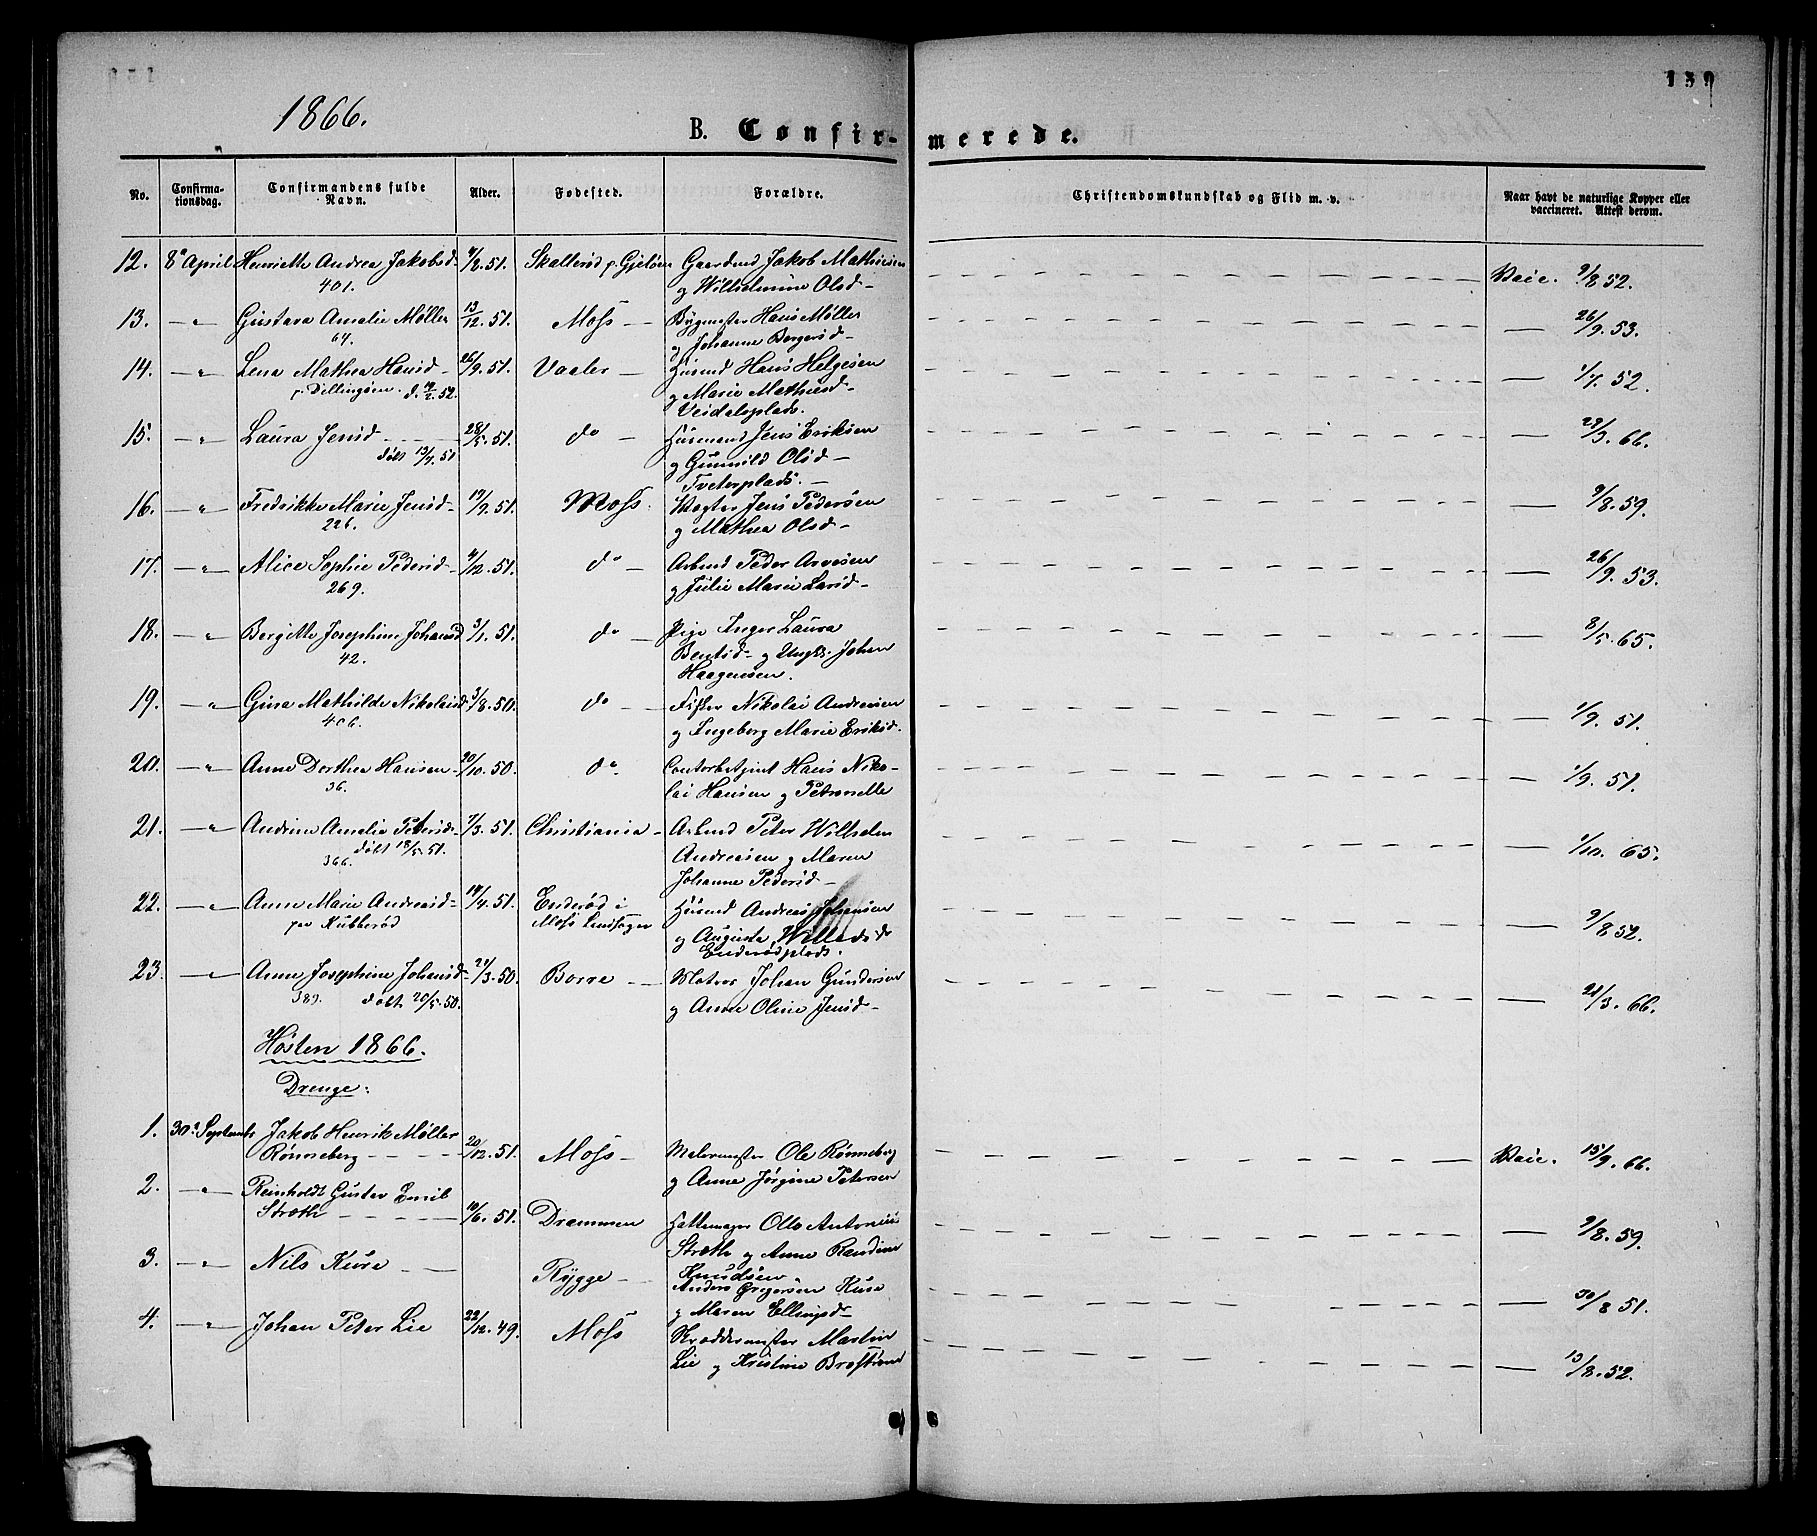 139
1866.
B. Confir-merede.
No. Confirma-tionsdag. Confirmandens fulde Navn. Alder. Fødested. Forældre. Christendomskundskab og Flid m. v. Naar havt de naturlige Kopper eller vaccineret. Attest derom.
12. 8de April Henriette Andrea Jakobsd. 4/2. 51. Skallerød p. Gjeløen Gaardmd Jakob Mathiesen Vacc. 9/8 52.
401. og Wilhelmine Olsd-
13. -"- Gustava Amalie Møller 13/12. 51. Moss - Bygmester Hans Møller 26/9. 53.
64. og Johanne Bergersd-
14. -"- Lena Mathea Hansd- 26/9. 51. Vaaler - Husmd Hans Helgesen 1/7. 52.
p. Dillingøen. d. 52. og Marie Mathiesd-
Veidalsplads.
15. -"- Laura Jensd 28/5. 51. do - Husmand Jens Eriksen 23/3. 66.
døbt 13/7. 51 og Gunnild Olsd-
Tveterplads. -
16. -"- Fredrikke Marie Jensd- 19/9. 51. Moss. Vægter Jens Pedersen 9/8. 59.
226. og Mathea Olsd-
17. -"- Alice Sophie Pedersd- 4/12. 51. do - Arbmd Peder Arvesen 26/9. 53.
269. og Julie Marie Larsd-
18. -"- Bergitte Josephine Johansd 3/1. 51. do - Pige Inger Laura 8/5. 65.
42. Bentsd- og Ungk. Johan
Haagensen.
19. -"- Gina Mathilde Nikolaisd 3/8. 50. do - Fisker Nikolai Andresen 1/9. 51.
406. og Ingeborg Marie Eriksd.
20. -"- Anne Dorthea Hansen- 20/10. 50. do. Contorbetjent Hans Niko- 1/9. 51.
36. lai Hansen og Petronelle
21. -"- Andrine Amalia Petersd- 7/3. 51. Christiania - Arbmd Peter Wilhelm 1/10. 65.
døbt 18/5. 51. Andreasen og Maren
366. Johanne Pedersd-
22. -"- Anne Marie Andreasd- 14/4. 51. Enderød i Husmd Andreas Johansen 9/8 52.
paa Kubberød Moss Landsogn og Auguste Willadsd
Enderødplads.
23. -"- Anne Josephine Johansd- 21/3. 50. Borre - Matros Johan Gundersen 21/3. 66.
389. døbt 20/5. 50. og Anne Oline Jensd-
Høsten 1866.
Drenge:
1. 30te Septembr Jakob Henrik Møller
Rønneberg 20/12. 51. Moss - Malermester Ole Rønneberg Vacc. 15/9. 66.
2. -"- Reinholdt Gustav Emil og Anne Jørgine Petersen
Stroth 10/6. 51. Drammen Hattemager Otto Antonius 9/8. 59.
3. -"- Nils Kure Stroth og Anne Randine
Rygge - Knudsen
Anders Gregersen Kure 30/8 51.
4. -"- Johan Peter Lie 22/12. 49. Moss og Maren Ellingsd-
Skræddermester Martin
Lie og Kristine Brostrøm 13/8. 52.